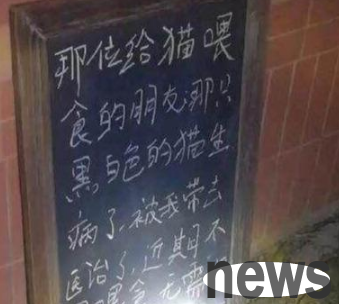 那位给猫喂
食的朋友那只
黑白色的猫生
病了,被我带去
医治了,近期不
喂食 无需
news